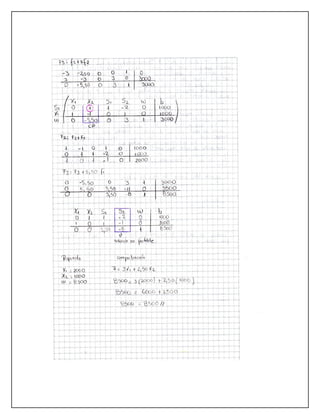 F3: f3+3f2
-3 -2,50 0 0 1 0
3 -3 0 3 0 3000
0 -5,50 0 3 1 3000
X1 X2 S1 S2 W b
S1 0 1 1 -2 0 1000
X1 1 1 0 1 0 1000
W 0 -5,50 0 3 1 3000
F2: f2+f1
1 -1 0 1 0 1000
0 1 1 -2 0 1000
1 0 1 -1 0 2000
F3: f3+5,50 f1
0 -5,50 0 3 1 3000
0 5,50 5,50 -11 0 5500
0 0 5,50 -8 1 8500
X1 X2 S1 S2 W b
0 1 1 -2 0 1000
1 0 1 -1 0 2000
0 0 5,50 -8 1 8500
Respuesta comprobación
X1 = 2000 Z = 3X1 + 2,50 X2
X2 = 1000
W = 8500 8500 = 3(2000) + 2,50(1000)
8500 = 6000 + 2500
8500 = 8500